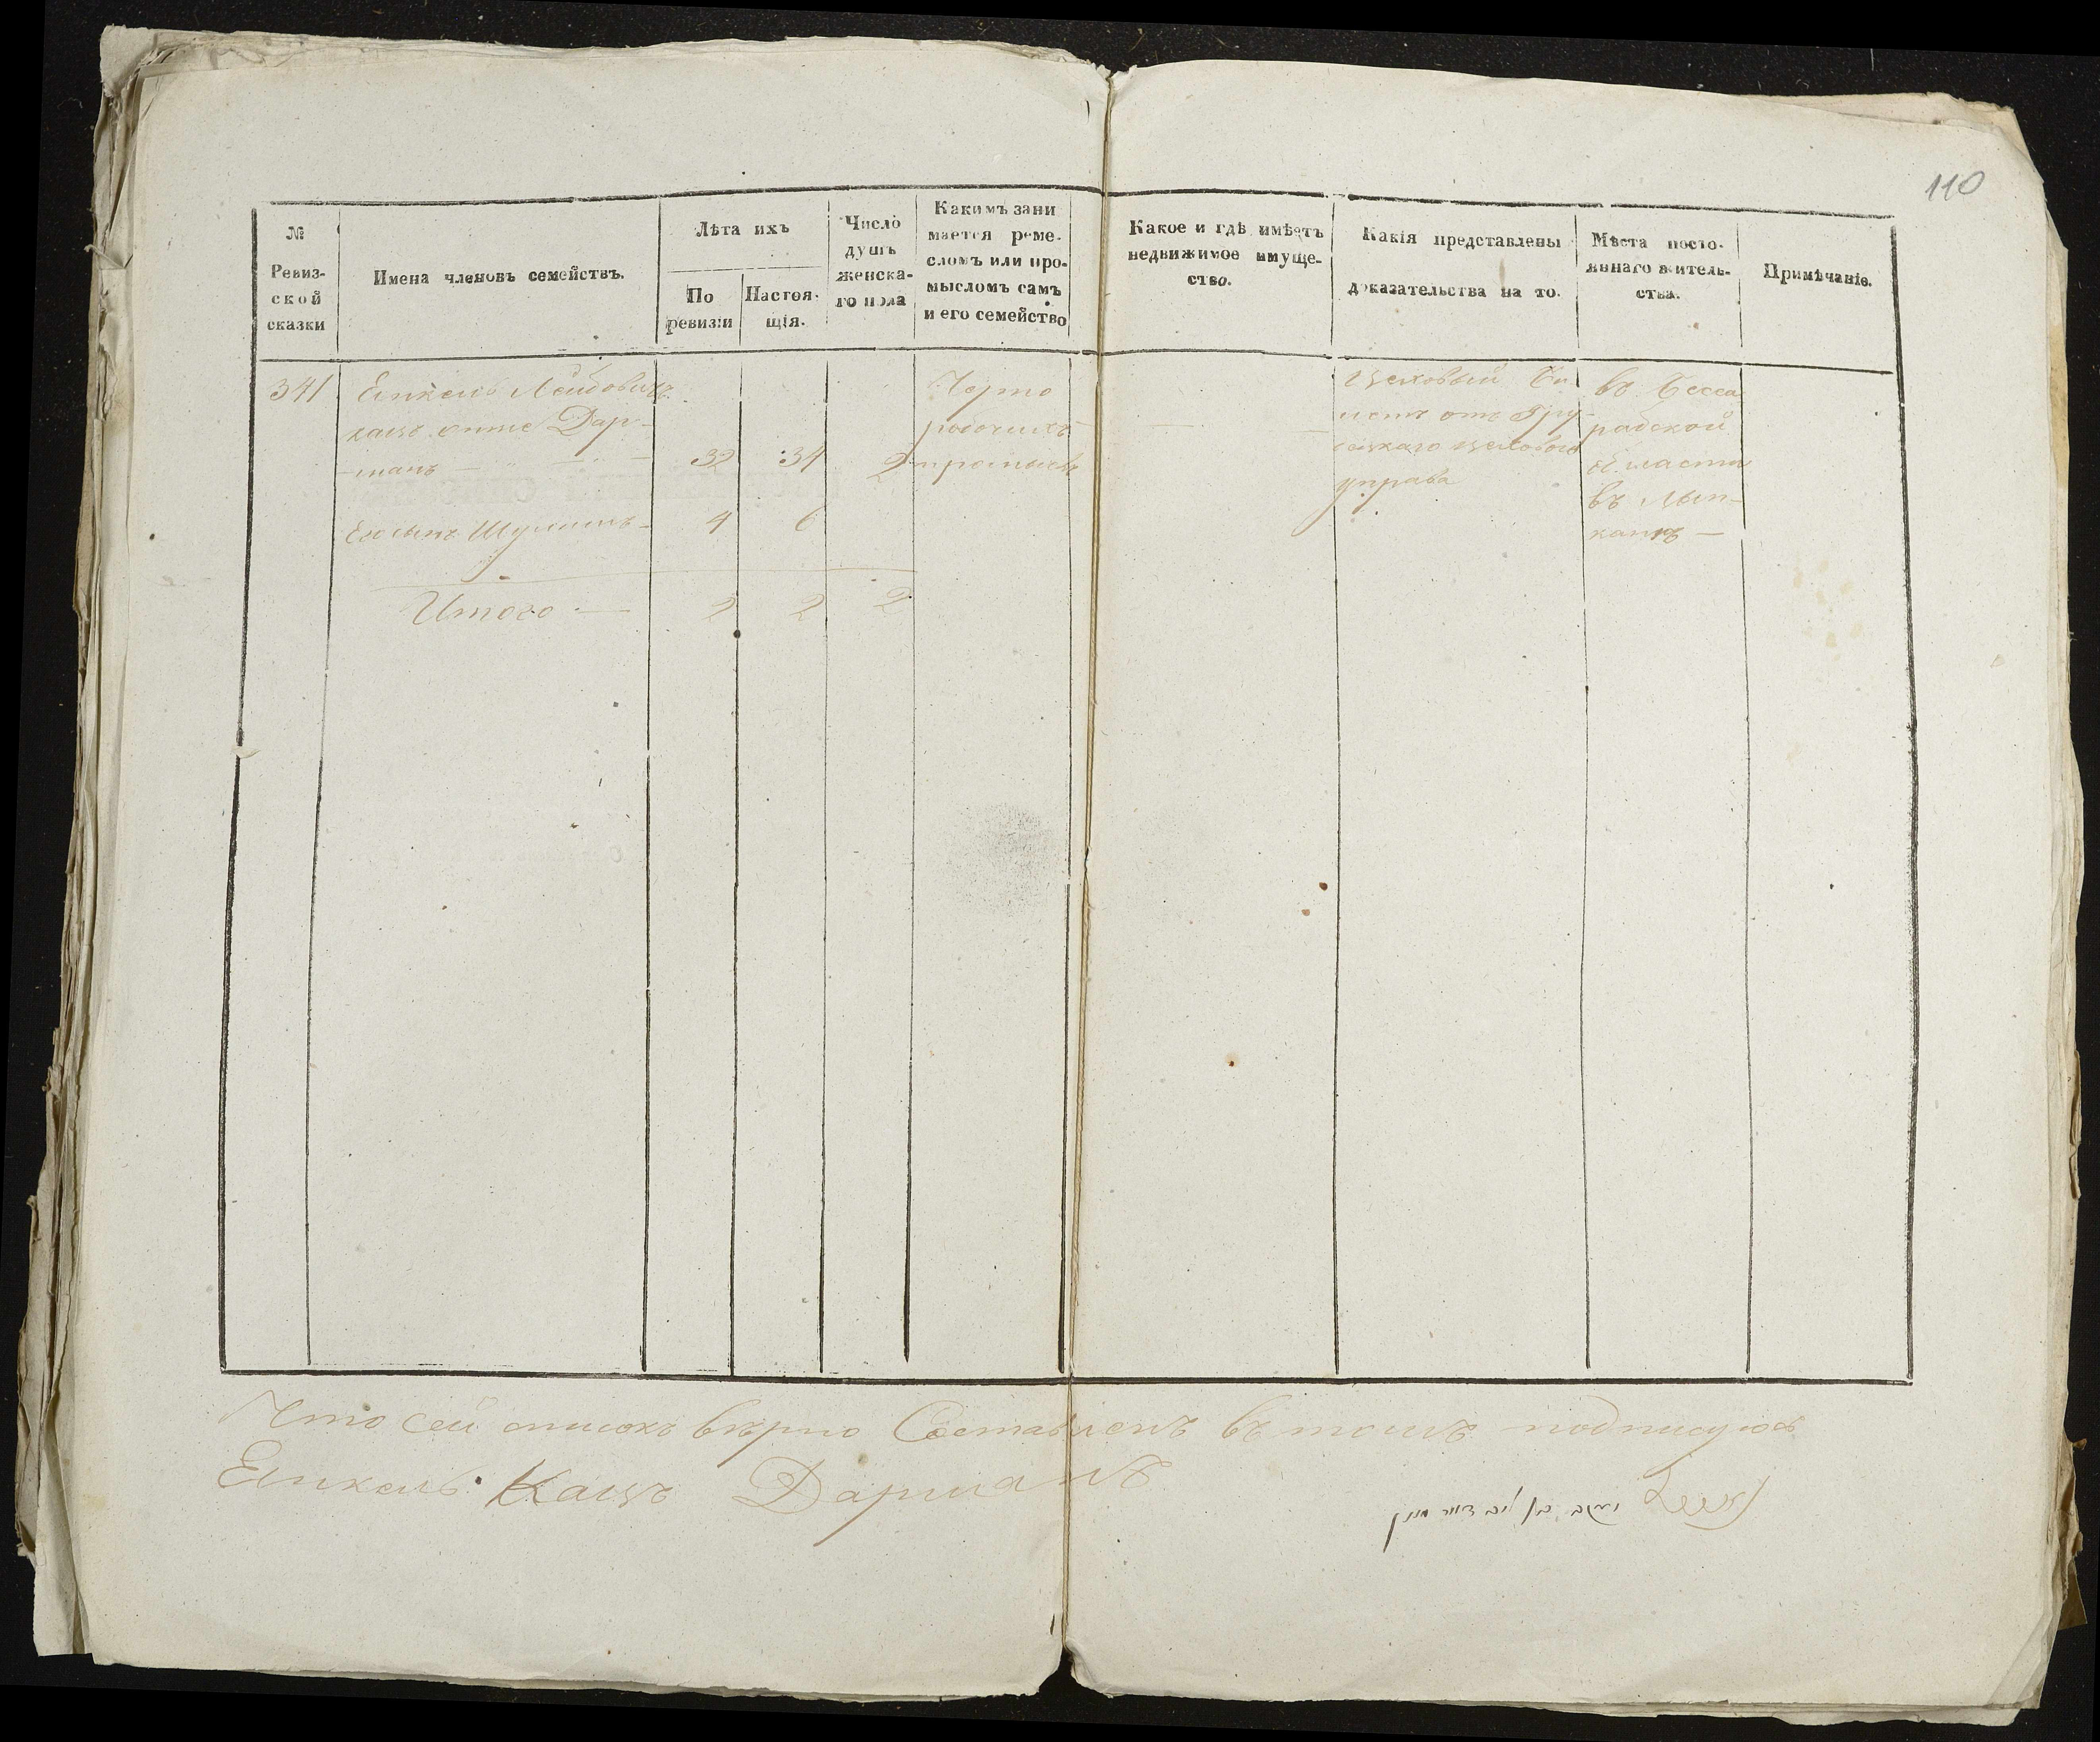 110
№
Ревиз-
ской
сказки
Имена членовъ семействъ.
Лѣта ихъ
По
ревизіи
Настоя-
щія.
Число
душъ
женска-
го пола
Какимъ зани
мается реме-
сломъ или про-
мысломъ самъ
и его семейство
Какое и гдѣ имѣетъ
недвижимое имуще-
ство.
Какія представлены
доказательства на то.
Мѣста посто-
яннаго житель-
ства.
Примѣчаніе.
341
Еинкель Лейбовичъ
кацъ онже Дар-
манъ 32 34 2
Черно
робочимъ
промысл
Цеховый
листъ отъ
цехового
управа
въ Бесса
рабской
области
въ Лып-
канхъ
Его сынъ 4 6
Итого 2 2 2
Что сей списокъ вѣрно Составленъ въ томъ подписуюсь
Еинкель Кацъ Дарманъ
יעקב בן